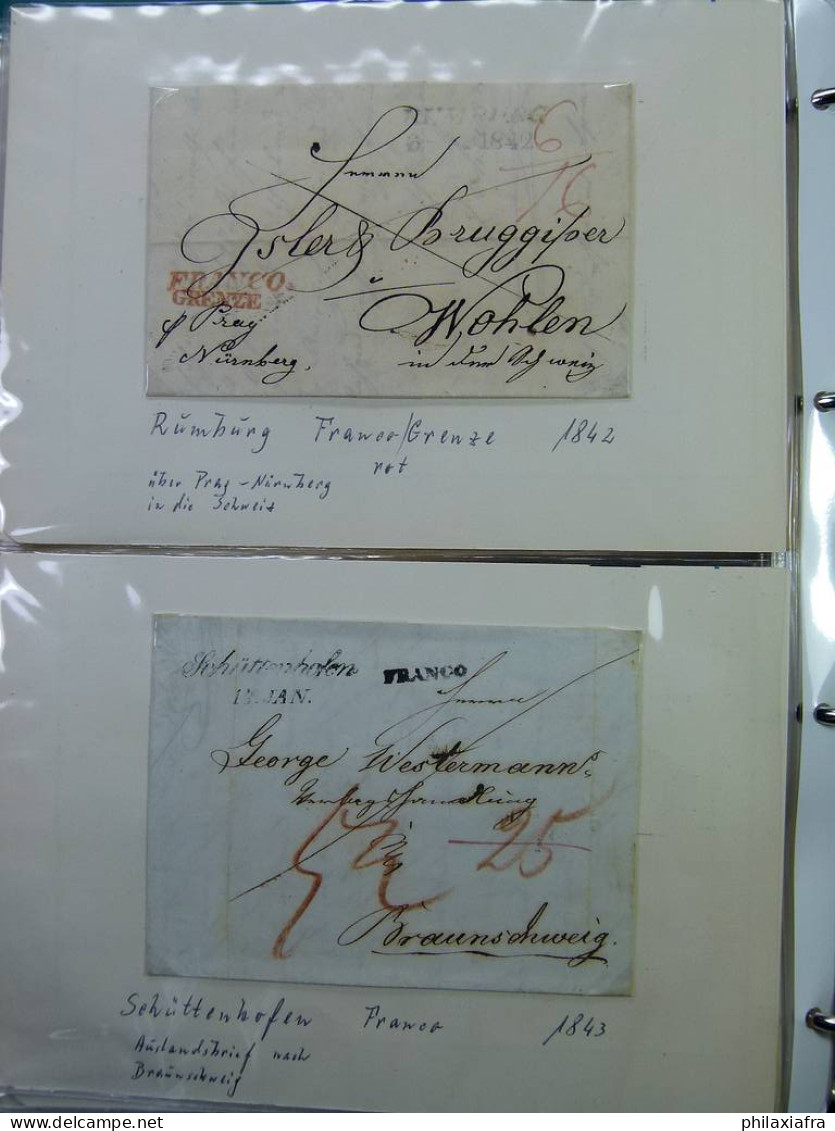 1842
6
Herrn
Isler & Bruggisser
FRANCO.
GRENZE
Wohlen
p Prag
Nürnberg.
in der Schweiz
Rumburg Franco/Grenze 1842
rot
über Prag - Nürnberg
in die Schweiz
Schüttenhofen FRANCO
17. JAN.
Herrn
George Westermann
Verlagshandlung
25
in
Braunschweig.
Schüttenhofen Franco 1843
Auslandsbrief nach
Braunschweig
delcampe.net
philaxiafra